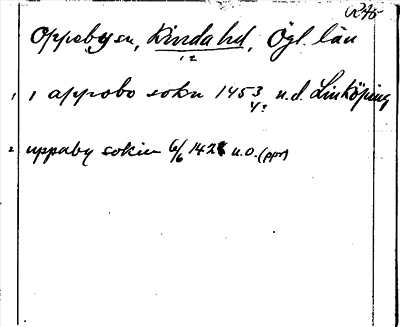 Oppeby sn, Kinda hd, Ögl. län
12
1 i appobo sokn 1453 u.d. Linköping
2 uppaby sokn 6/6 1421 u.o. (ppr)